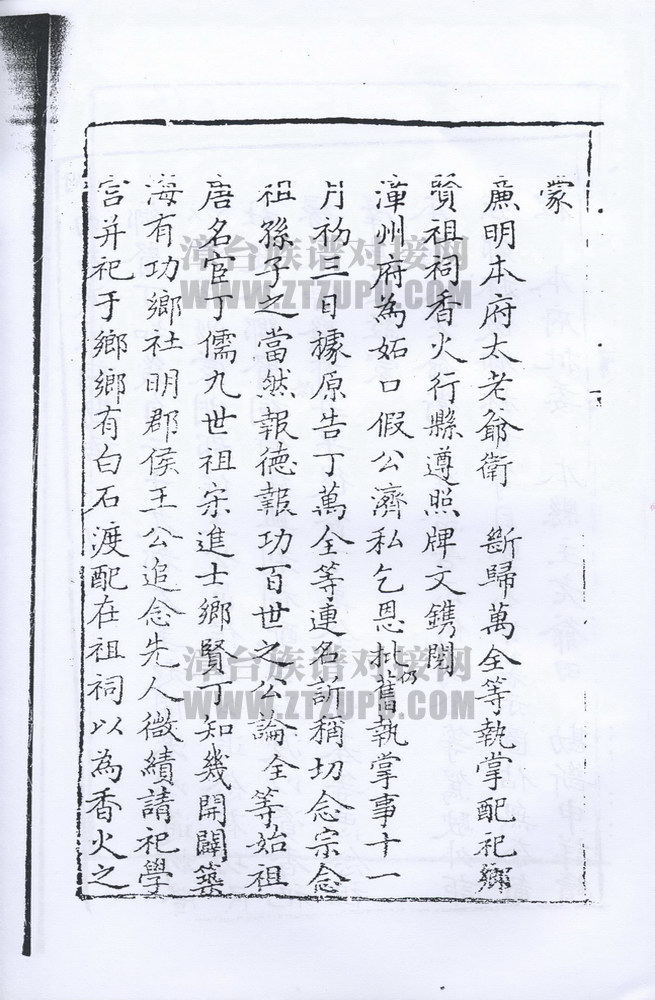 蒙
廉明本府太老爺衛 斷歸萬全等執掌配祀鄉
賢祖祠香火行縣遵照牌文鐫閱
漳州府為妬口假公濟私乞恩批仍舊執掌事十一
月初三日據原告丁萬全等連名訴稱切念宗念
祖孫子之當然報德報功百世之公論全等始祖
唐名宦丁儒九世祖宗進士鄉賢丁知幾開闢築
海有功鄉社明郡侯王公追念先人微績請祀學
宮并祀于鄉鄉有白石渡配在祖祠以為香火之
漳台族谱对接网
WWW.ZTZUPU.COM
漳台族谱对接网
WWW.ZTZUPU.COM